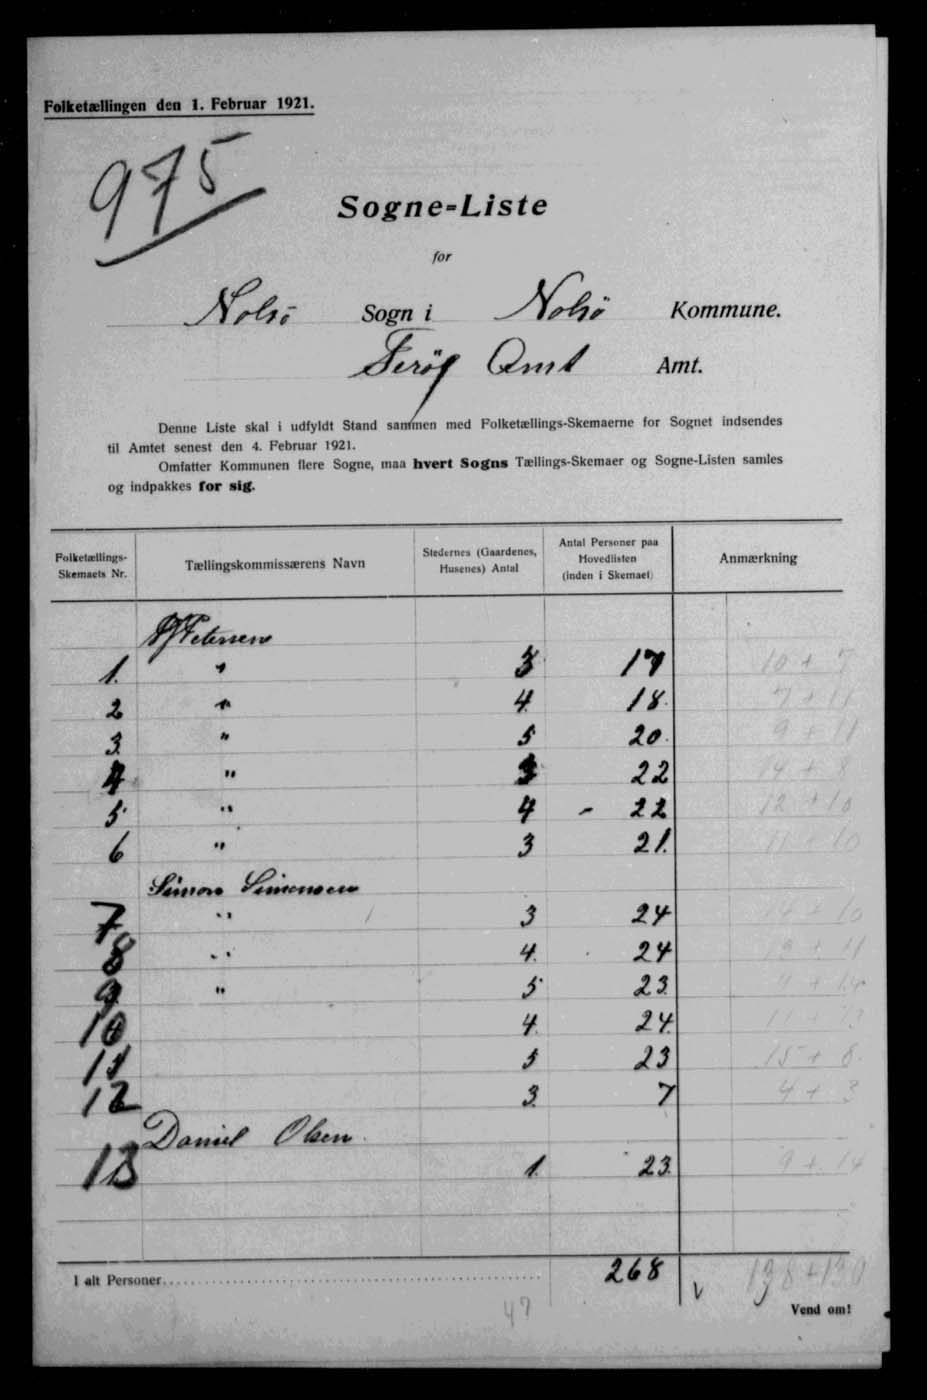 Folketællingen den 1. Februar 1921.
975
Sogne=Liste
for
Nolsö Sogn i Nolsö Kommune.
Færö Amt Amt.
Denne Liste skal i udfyldt Stand sammen med Folketællings-Skemaerne for Sognet indsendes
til Amtet senest den 4. Februar 1921.
Omfatter Kommunen flere Sogne, maa hvert Sogns Tællings-Skemaer og Sogne-Listen samles
og indpakkes for sig.
Folketællings-Skemaets Nr. Tællingskommissærens Navn Stedernes (Gaardenes, Husenes) Antal Antal Personer paa Hovedlisten (inden i Skemaet) Anmærkning
Petersen
1. " 3 17 10 + 7
2 " 4. 18. 7 + 11
3. " 5 20. 9 + 11
4 " 3 22 14 + 8
5 " 4 - 22 12 + 10
6 " 3 21. 11 + 10
Simon Simonsen
7 " 3 24 14 + 10
8 " 4. 24 13 + 11
9 " 5 23. 9 + 14
10 4. 24. 11 + 13
11 5 23 15 + 8
12 3. 7 4 + 3
Daniel Olsen
13 1. 23. 9 + 14
I alt Personer 268 138 + 130
47
Vend om!